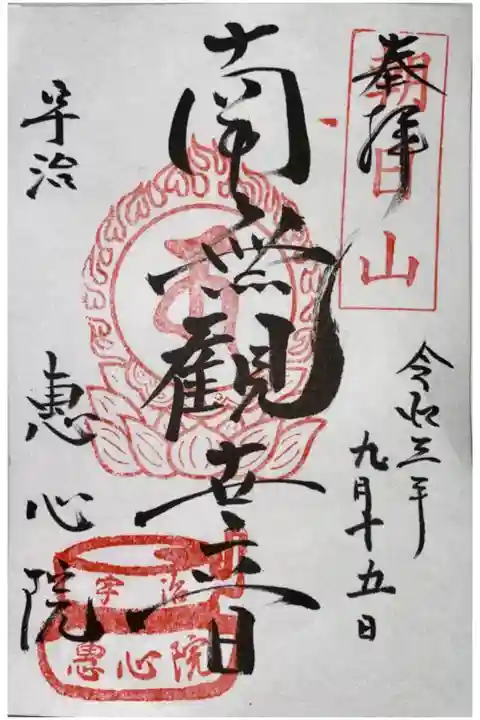 奉拝
朝日山
令和三年
九月十五日
南無観世音
早治
恵心院
宇治
恵心院